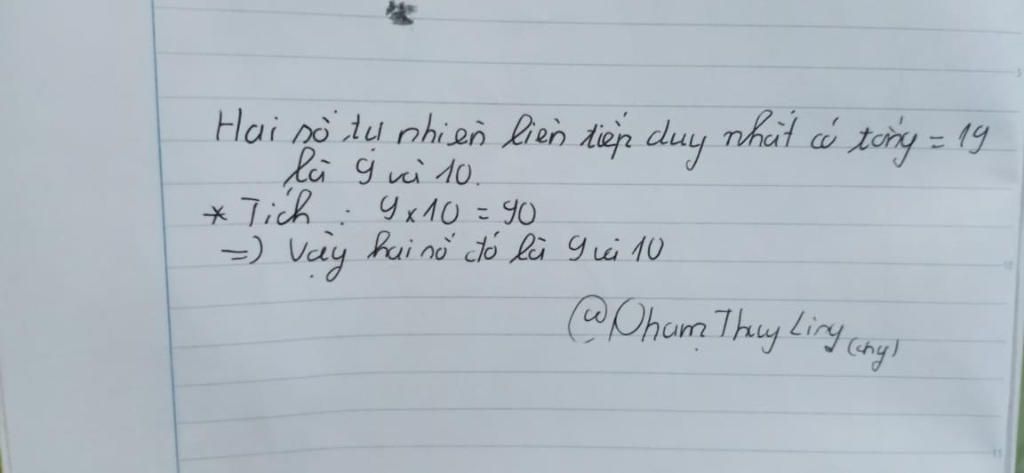 Hai số tự nhiên liên tiếp duy nhất có tổng = 19
là 9 và 10.
* Tích : 9 x 10 = 90
=) Vậy hai số đó là 9 và 10
@Phạm Thuy Liny (chy)